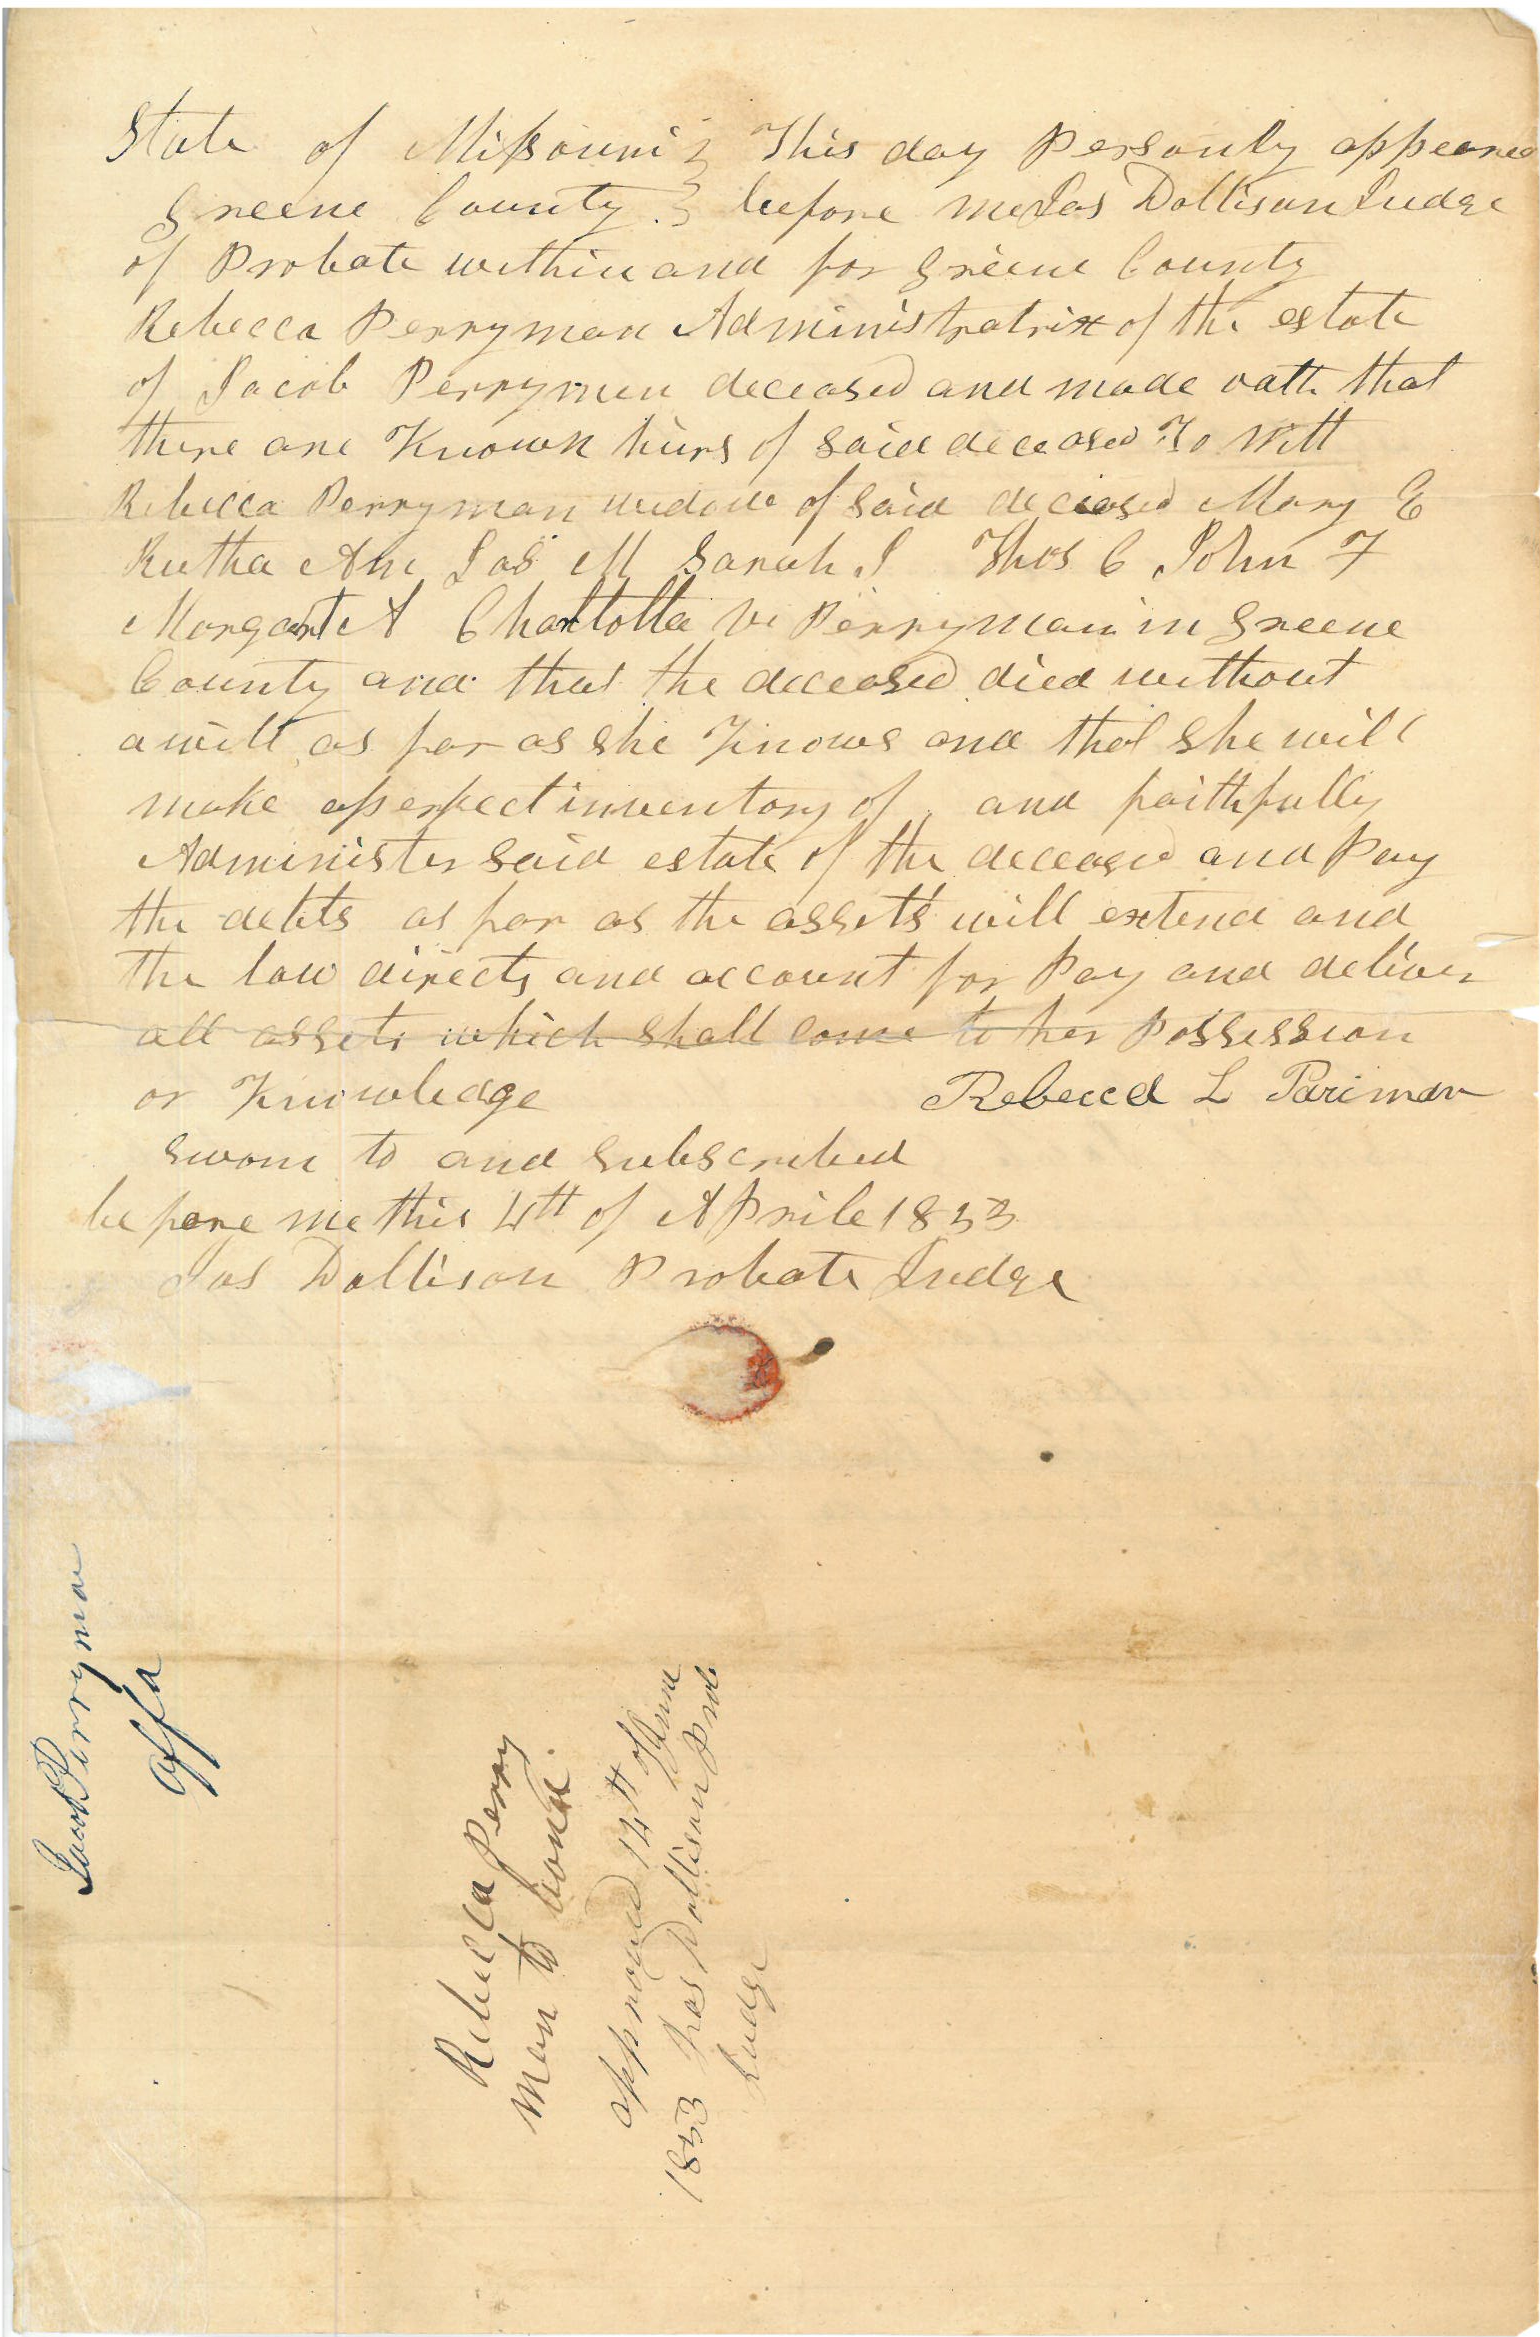 State of Missouri } This day Personly appeared
Greene County } before me Jas Dollison Judge
of Probate within and for Greene County
Rebecca Perryman Administratrix of the estate
of Jacob Perryman deceased and made oath that
there are Known hiirs of said deceased To Witt
Rebecca Perryman widow of said deceased Mary E
Rutha Ann Jas M Sarah J Thos C John F
Margart A Charlotta Perryman in Greene
County and that the deceased died without
a will as far as she Knows and that she will
make a perfect inventory of and faithfully
Administer said estate of the deceased and Pay
the debts as far as the assets will extend and
the law directs and account for Pay and deliver
all assets which shall come to her Possession
or Knowledge Rebecca L Pariman
sworn to and subscribed
before me this 4th of Aprile 1853
Jas Dollison Probate Judge
Jacob Perryman
Rebecca Perry
man to bond.
approved 14th of June
1853 Jas Dollison Prob
Judge